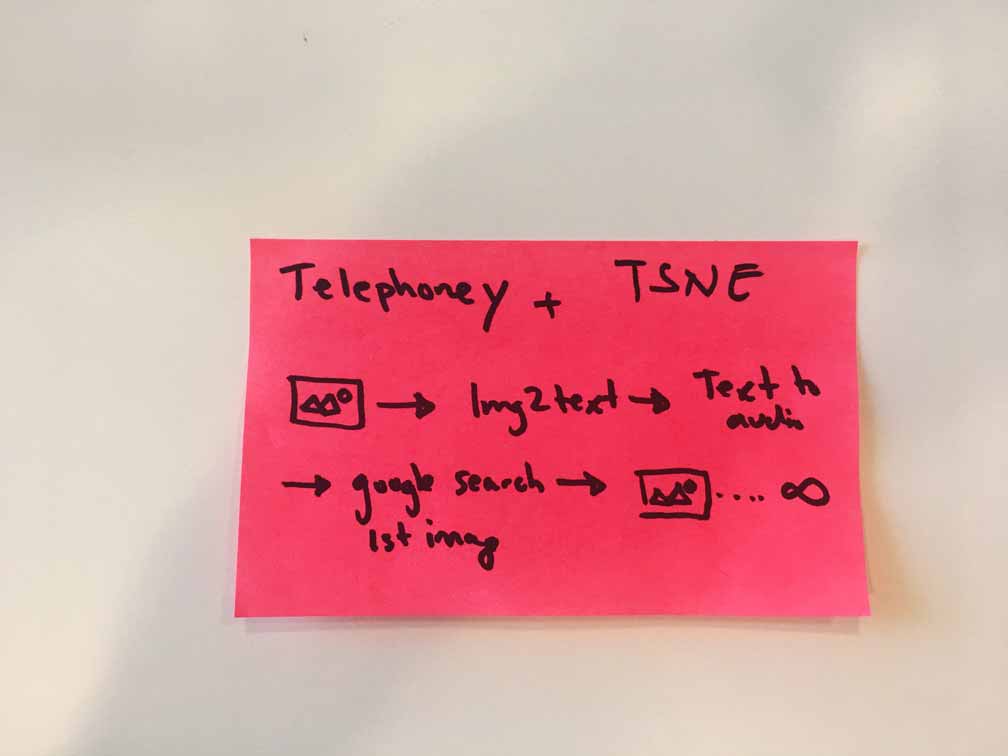 Telephoney + TSNE
→ Img2text → Text to audio
→ google search → .... ∞
1st imag